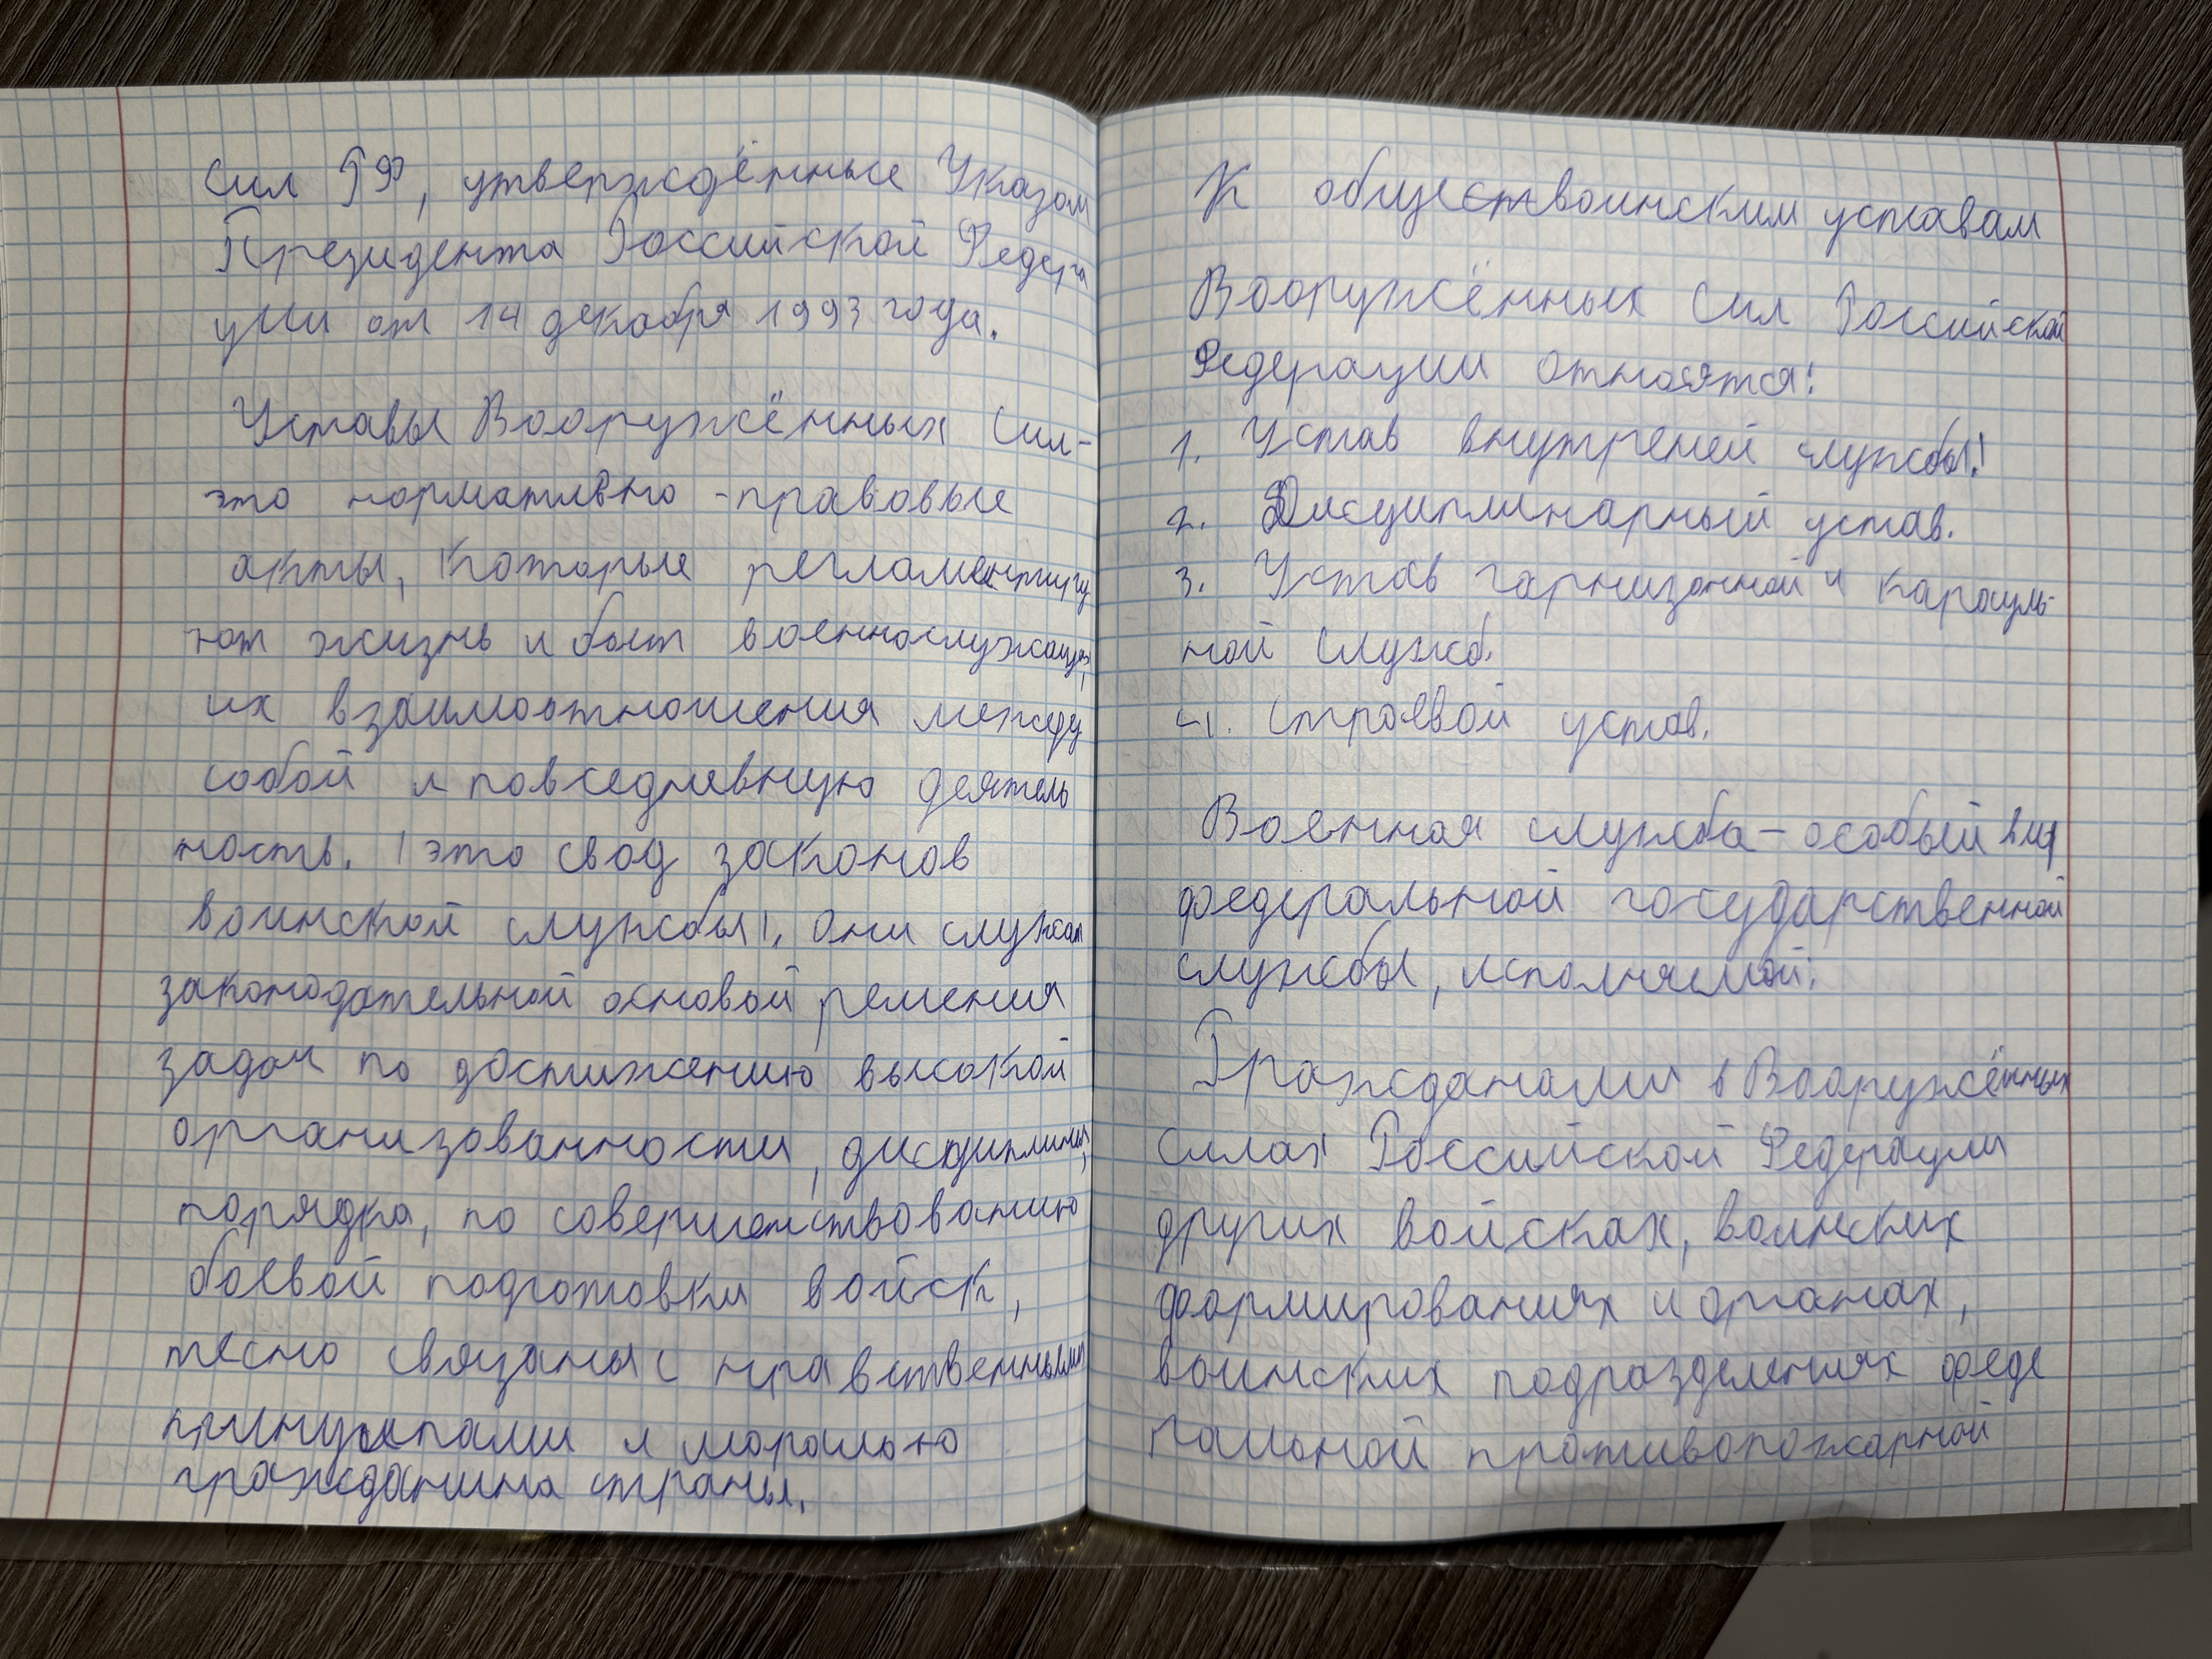 Сил РФ, утверждённые Указом
Президента Российской Федера
ции от 14 декабря 1993 года.
Уставы Вооружённых Сил-
это нормативно-правовые
акты, которые регламентиру
ют жизнь и быт военнослужащих,
их взаимоотношения между
собой и повседневную деятель
ность. это свод законов
воинской службы. Они служат
законодательной основой решения
задач по достижению высокой
организованности, дисциплины,
порядка, по совершенствованию
боевой подготовки войск,
тесно связаны с нравственными
принципами и моралью
гражданина страны.
К обществоинским уставам
Вооружённых Сил Российской
Федерации относятся:
1. Устав внутреней службы!
2. Дисциплинарный устав.
3. Устав гарнизонной и карауль-
ной служб.
4. Строевой устав.
Военная служба - особый вид
федеральной государственной
службы, исполняемой:
Гражданами в Вооружённых
Силах Российской Федерации
других войсках, воинских
формированиях и органах,
воинских подразделениях феде
ральной противопожарной